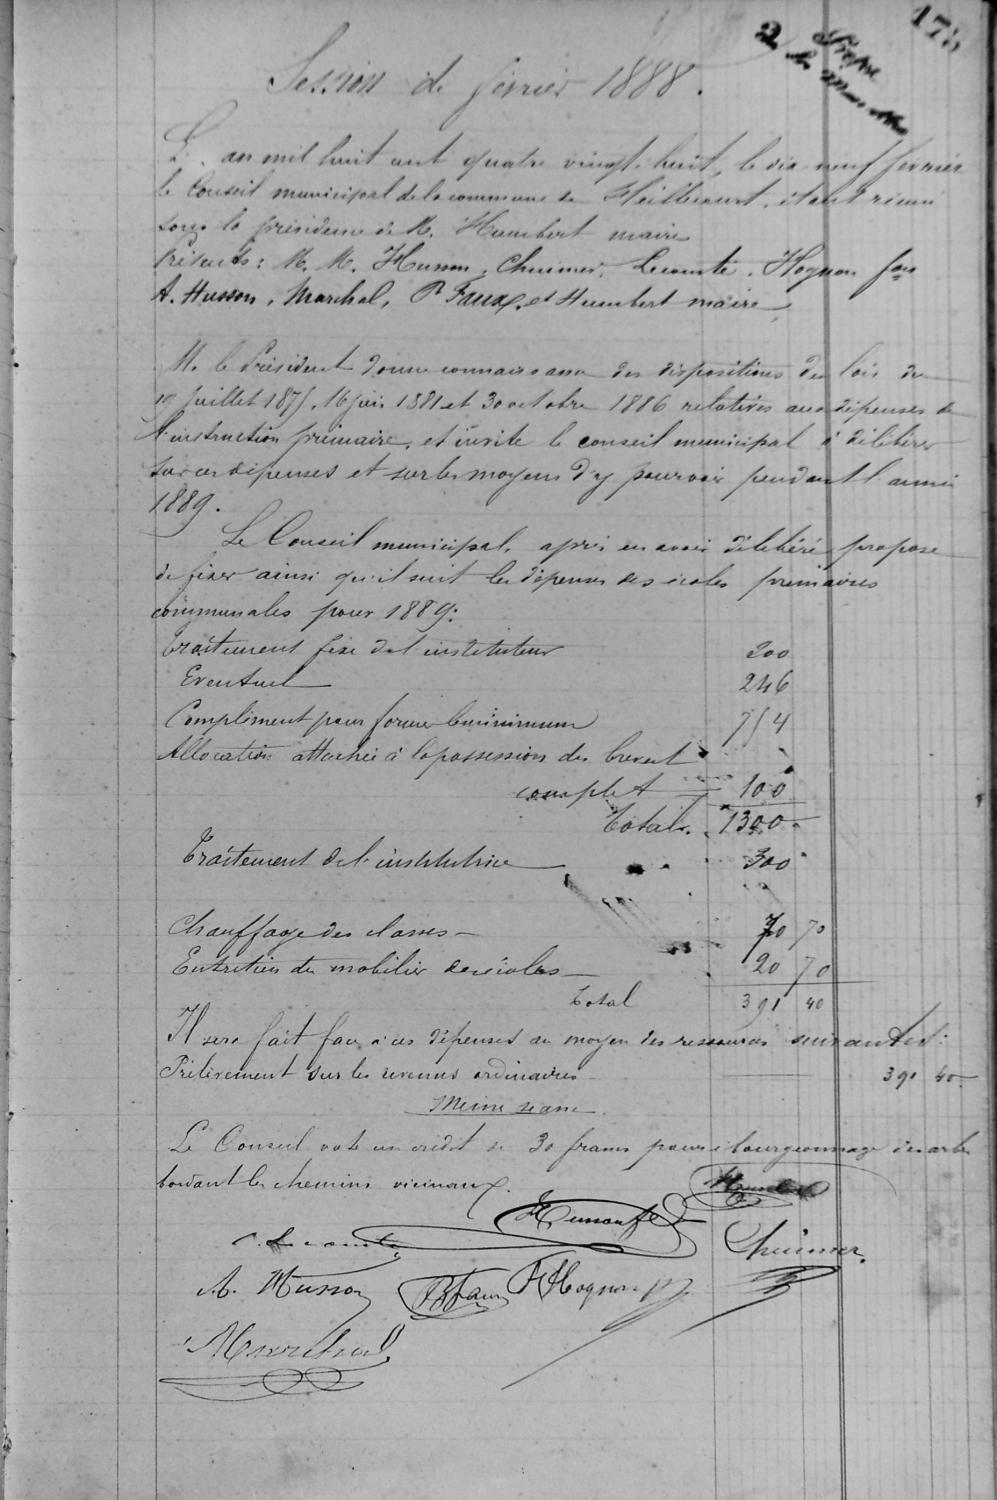 Session de février 1888.
L'an mil huit cent quatre vingt-huit, le dix-neuf février
le Conseil municipal de la commune de Heillecourt, étant réuni
sous la présidence de M. Humbert maire
Présents: M. M. Husson, Chuimer, Lecomte, Hognon fçois
A. Husson, Marchal, P. Faux, et Humbert maire,
M. le Président donne connaissance des dispositions des lois du
19 Juillet 1875, 16 juin 1881 et 30 octobre 1886 relatives aux dépenses de
l'instruction primaire, et invite le conseil municipal à délibérer
sur ces dépenses et sur les moyens d'y pourvoir pendant l'année
1889.
Le Conseil municipal, après en avoir délibéré, propose
de fixer ainsi qu'il suit les dépenses des écoles primaires
communales pour 1889:
Traitement fixe de l'instituteur 200
Eventuel 246
Compliment pour former le minimum 754
Allocation attachée à la possession du brevet
complet 100
Total. 1300
Traitement de l'institutrice 300
Chauffage des classes 70 70
Entretien du mobilier des écoles 20 70
Total 391 40
Il sera fait face à ces dépenses au moyen des ressources suivantes:
Prélèvement sur les revenus ordinaires 391 40
Même séance
Le Conseil vote un crédit de 30 francs pour ébourgeonnage des arbres
bordant les chemins vicinaux.
Humbert
Husson
C. Lecomte Chuimer
A. Husson P Faux F Hognon
Marchal